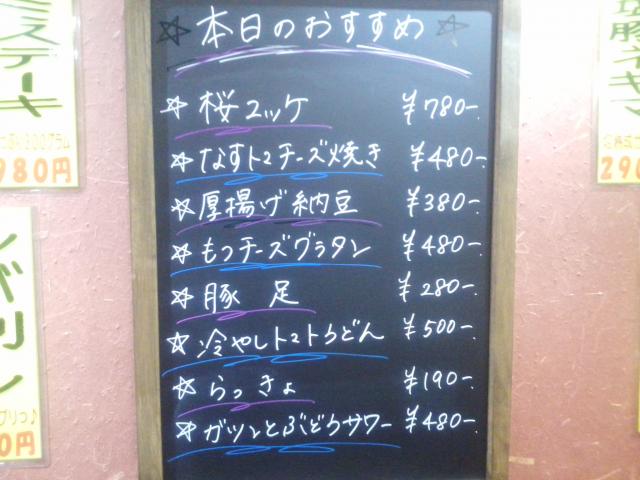 ☆本日のおすすめ☆
☆桜ユッケ ¥780-.
☆なすトマチーズ焼き ¥480-.
☆厚揚げ納豆 ¥380-.
☆もつチーズグラタン ¥480-.
☆豚 足 ¥280-.
☆冷やしトマトうどん ¥500-.
☆らっきょ ¥190-.
☆ガツンとぶどうサワー ¥480-.
ステーキ
300グラム
980円
プリっ♪
0円
豚ネギマ
290